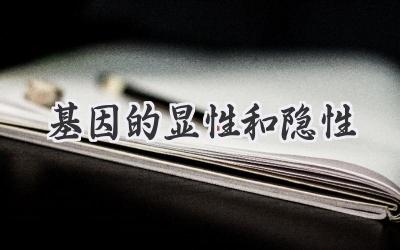 基因的显性和隐性